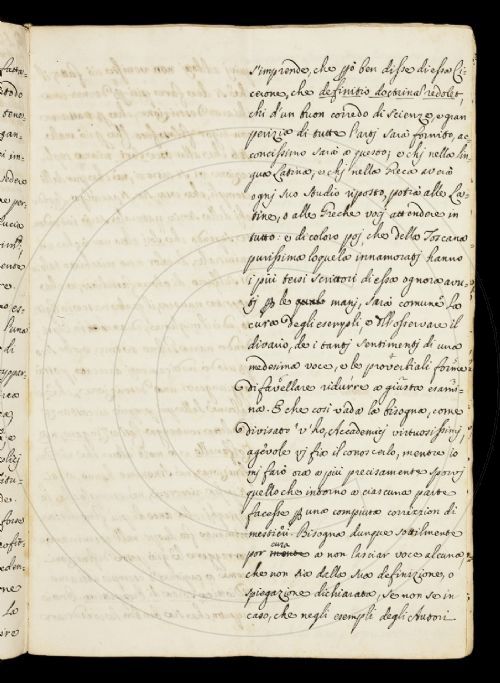 s'imprende, che p̄ò ben disse di essa Ci-
cerone, che definitio doctrinã redolet,
chi d'un buon corredo di scienze, e gran
perizia di tutte l'artj sarà fornito, ac
concissimo sarà a questo; e chj nella lin
gua Latina, e chj nella Greca averà
ognj suo studio riposto, potrà alle La-
tine, o alle Greche vocj attendere in
tutto: e di coloro poj, che della Toscana
purissima loquela innamoratj hanno
i più tersi scrittori di essa ognora avu-
tj p le manj, sarà comune la
cura degli esempli, e ll'osservare il
divario, de i tantj sentimentj di una
medesima voce, e le proverbiali forme
di favellare ridurre a giusta esami-
na. E che così vada la bisogna, come
divisato v'ho, Accademicj virtuosissimj,
agevole vj fia il conoscerlo, mentre io
mj farò ora a più precisamente sporvj
quello che intorno a ciascuna parte
facesse p una compiuta correzion di
mestierj. Bisogna dunque sottilmente
cura
por mente a non lasciar voce alcuna,
che non sia dalla sua definizione, o
spiegazione dichiarata, se non se in
caso, che negli esempli degli Autori